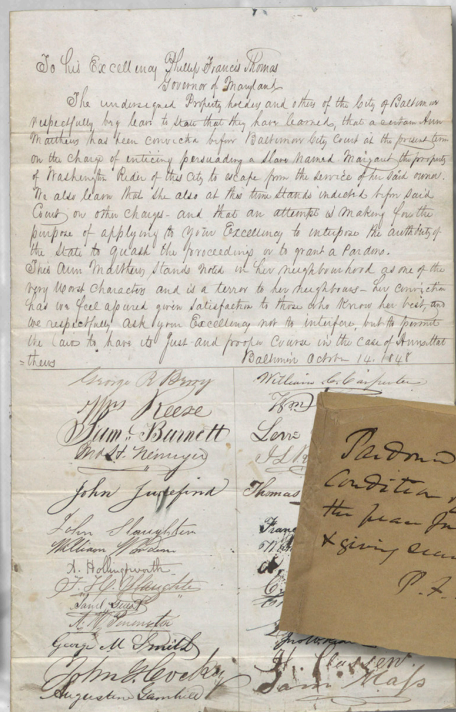 To his Excellency Phillip Francis Thomas
Governor of Maryland
The undersigned Property holders and others of the City of Baltimore
respectfully beg leave to State that they have learned, that a certain Ann
Matthews has been convicted before Baltimore City Court at the present term
on the charge of enticing persuading a slave named Margaret the property
of Washington Rider of this City to escape from the service of her said owner.
We also learn that she also at this time stands indicted before said
Court on other charges - and that an attempt is making for the
purpose of applying to your Excellency to interpose the authority of
the State to quash the proceedings or to grant a Pardon.
This Ann Matthews, stands noted in her neighbourhood as one of the
very worst characters and is a terror to her neighbours - her conviction
has we feel assured given satisfaction to those who know her best, and
we respectfully ask your Excellency not to interfere, but to permit
the Laws to have its just and proper course in the case of Ann Matt
=thews Baltimore October 14. 1848
George R Berry William C. Carpenter
Reese Wm
Saml Burnett Levi
John Thomas
John Slaughter Fran
William Worden
A. Hollingworth
George M Smith
John G Cocky H. Classen
Augustine Gambrill Saml Mass
Pardoned
Condition
the peace
& giving secu
P. F.